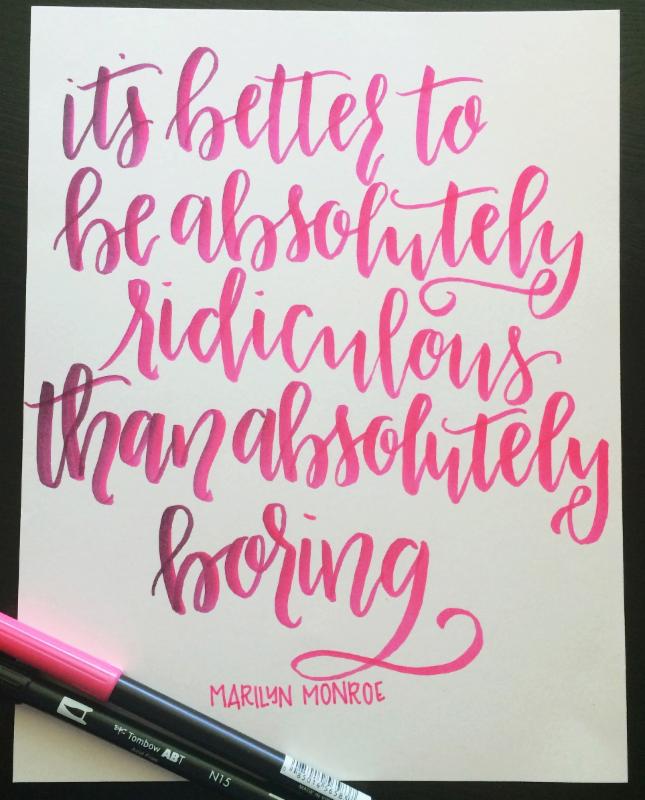 it's better to
be absolutely
ridiculous
than absolutely
boring
MARILYN MONROE
Tombow ABT
N15